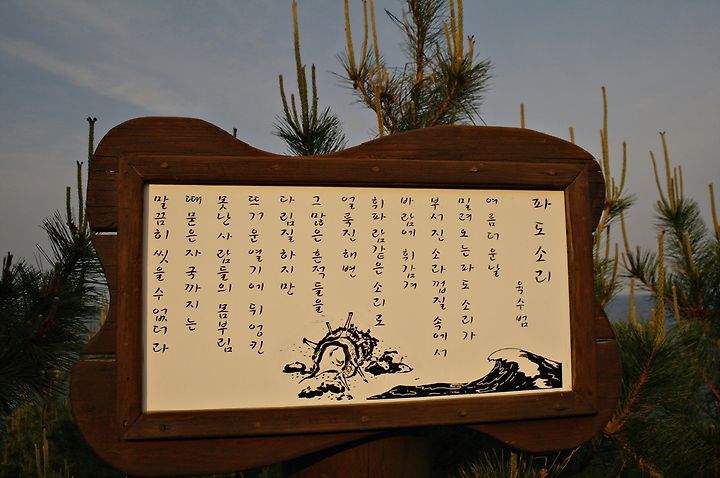 파도소리
육수범
여름 더운날
밀려오는 파도소리가
부서진 소라껍질 속에서
바람에 휘감겨
휘파람같은 소리로
얼룩진 해변
그 많은 흔적들을
다림질 하지만
뜨거운 열기에 뒤엉킨
못난 사람들의 몸부림
때묻은 자국까지는
말끔히 씻을 수 없더라